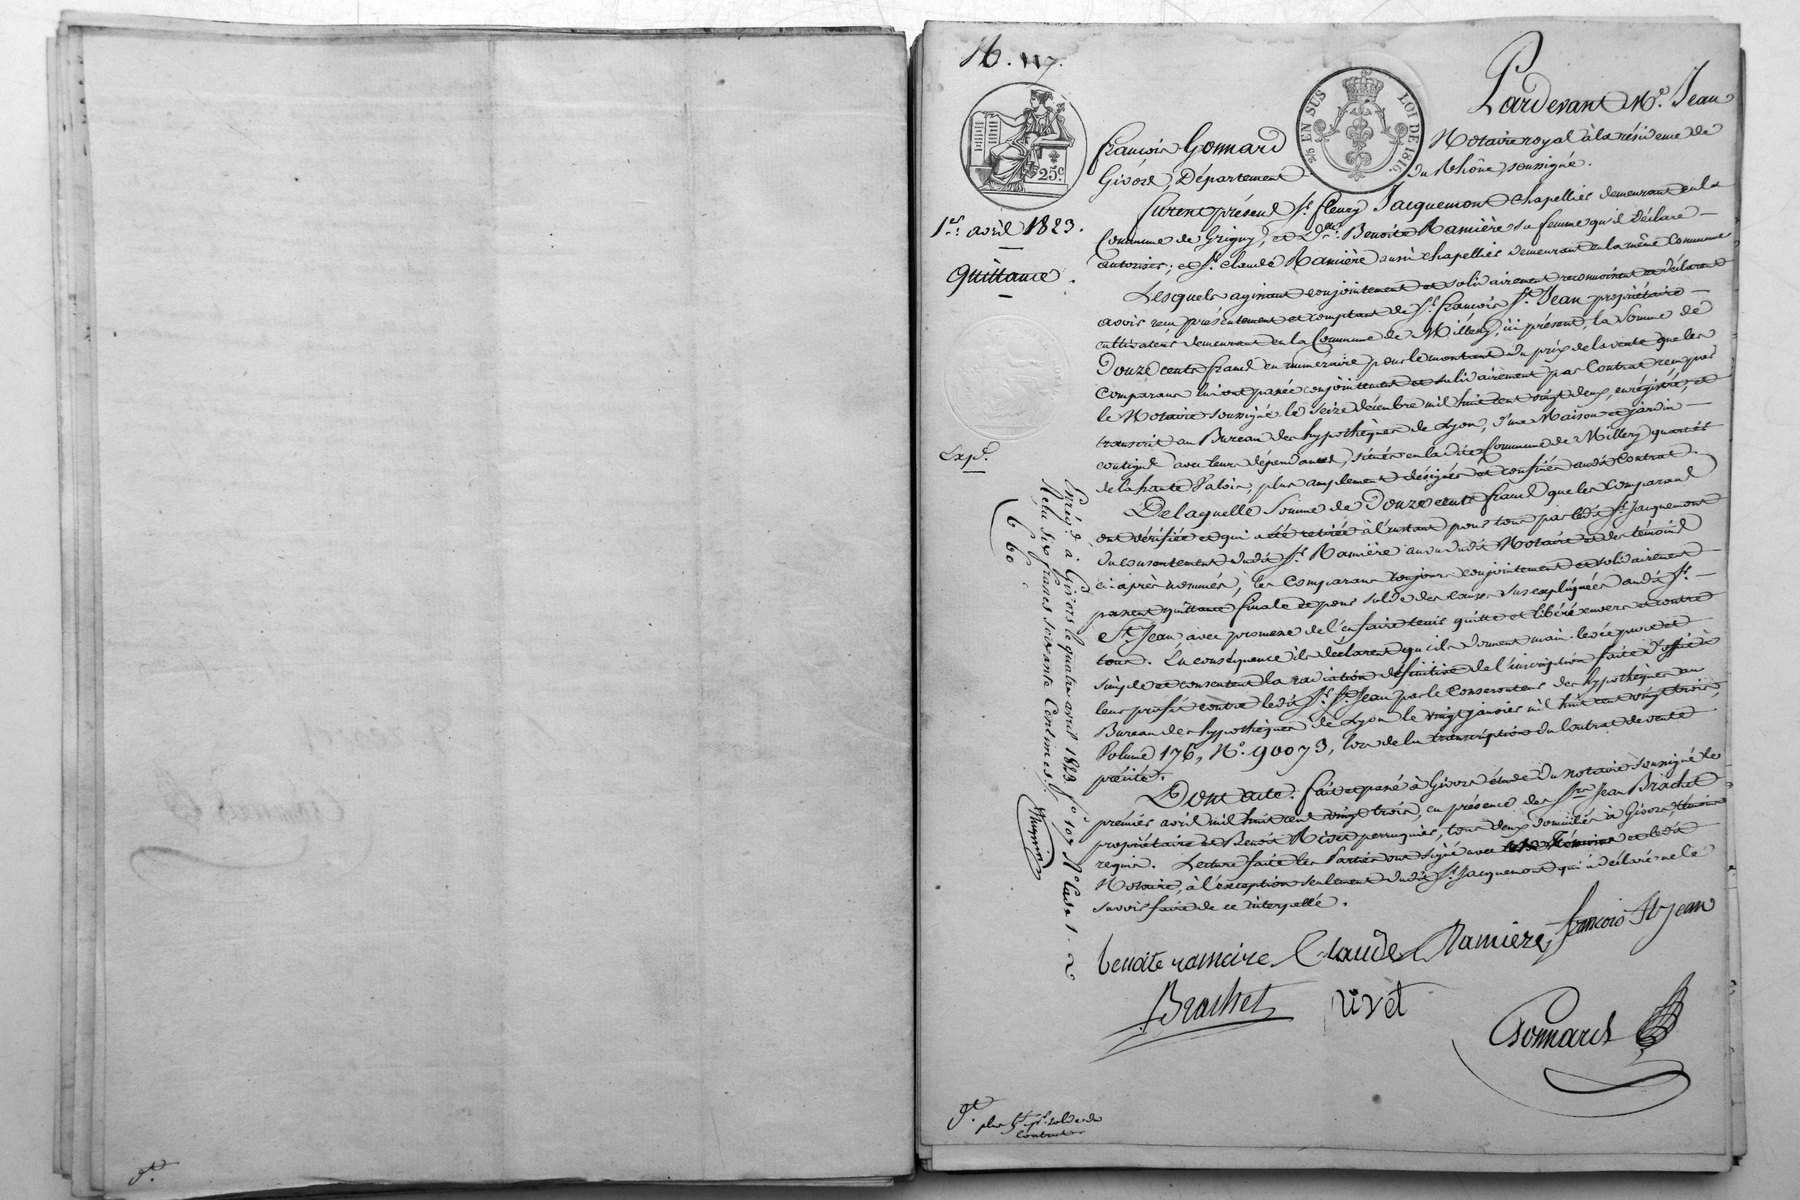 N. 117.
25 c.
5/6 EN SUS LOI DE 1816.
1er. avril 1823.
Quittance.
Exp.
Pardevant Me. Jean
françois Gonnard Notaire royal à la résidence de
Givors, Département du Rhône, soussigné.
furent présens Sr. fleury Jacquemont chapellier demeurant en la
Commune de Grigny, et De. Benoite Ramière sa femme qu'il déclare
autoriser; et Sr. Claude Ramière aussi chapellier demeurant en la même Commune
Lesquels agissant conjointement et solidairement reconnoissent et déclarent
avoir reçu présentement et comptant de Sr. françois St. Jean propriétaire
cultivateur demeurant en la Commune de Millery, ici présent, la somme de
Douze cents francs en numéraire pour le montant du prix de la vente que les
comparans lui ont passée conjointement et solidairement par Contrat reçu par
le Notaire soussigné le seize décembre mil huit cent vingt deux, enregistré, et
transcrit au Bureau des hypothèques de Lyon, d'une Maison et jardin
contigus avec leurs dépendances, situés en la dite Commune de Millery quartier
de la haute Valois, plus amplement désignés et confinés audit Contrat.
De laquelle somme de Douze cents francs que les comparans
ont vérifiée et qui a été retirée à l'instant pour tous par ledit Sr. Jacquemont
du consentement dudit Sr. Ramière au vu dudit Notaire et des témoins
ci-après nommés, les comparans toujours conjointement et solidairement
passent quittance finale et pour solde des causes sus expliquées audit Sr.
St. Jean, avec promesse de l'en faire tenir quitte et libéré envers et contre
tous. En conséquence ils déclarent qu'ils donnent main-levée pure et
simple et consentent la radiation définitive de l'inscription faite d'office à
leur profit contre ledit Sr. St. Jean par le Conservateur des hypothèques au
Bureau des hypothèques de Lyon le vingt janvier mil huit cent vingt trois,
Volume 176, No. 90073, lors de la transcription du Contrat de vente
précité.
Dont acte. fait et passé à Givors étude du notaire soussigné le
premier avril mil huit cent vingt trois, en présence des Srs. Jean Brachet
propriétaire et Benoit Rivet perruquier, tous deux domiciliés à Givors, témoins
requis. Lecture faite les Parties ont signé avec les témoins et ledit
Notaire, à l'exception seulement dudit Sr. Jacquemont qui a déclaré ne le
savoir faire de ce interpellé.
benoite rameire Claude Ramiere françois St jean
Brachet rivet
Gonnard
Enreg. à Givors le quatre avril 1823 fo. 107 Ro. Case 1. 2
Reçu six francs soixante Centimes.
6 60
plus solde du
Contrat